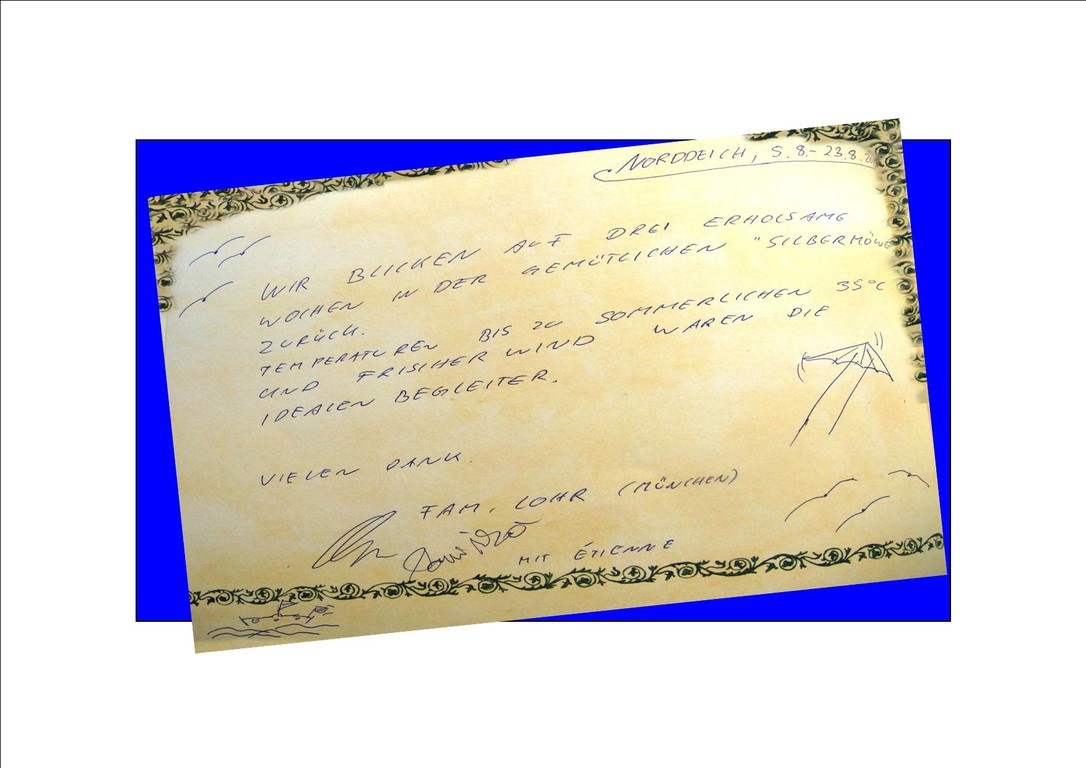 NORDDEICH, 5.8.- 23.8.
WIR BLICKEN AUF DREI ERHOLSAME
WOCHEN IN DER GEMÜTLICHEN "SILBERMÖWE
ZURÜCK.
TEMPERATUREN BIS ZU SOMMERLICHEN 35°C
UND FRISCHER WIND WAREN DIE
IDEALEN BEGLEITER.
VIELEN DANK.
FAM. LOHR (MÜNCHEN)
MIT ÉTIENNE